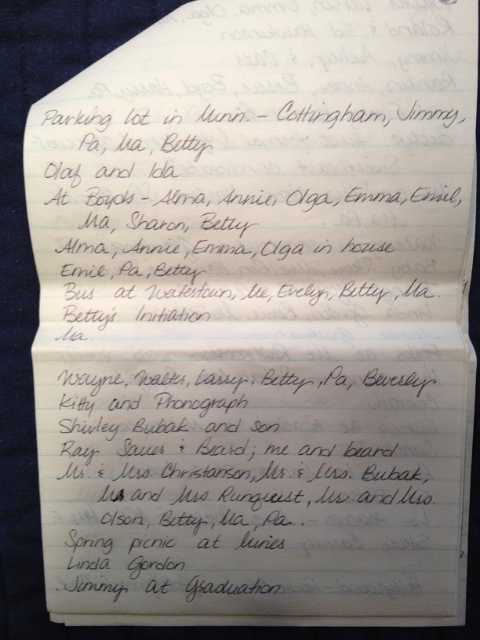 Parking lot in Minn. - Cottingham, Jimmy,
Pa, Ma, Betty
Olaf and Ida
At Boyds - Alma, Annie, Olga, Emma, Emil,
Ma, Sharon, Betty
Alma, Annie, Emma, Olga in house
Emil, Pa, Betty
Bus at Watertown, Me, Evelyn, Betty, Ma.
Betty's Initiation
Ma
Wayne, Walter, Larry, Betty, Pa, Beverly
Kitty and Phonograph
Shirley Bubak and son
Ray Sauer & Beard; me and beard
Mr. & Mrs Christensen, Mr. & Mrs. Bubak,
Mr and Mrs Runquist, Mr and Mrs.
Olson, Betty, Ma, Pa.
Spring picnic at
Linda Gordon
Jimmy at Graduation